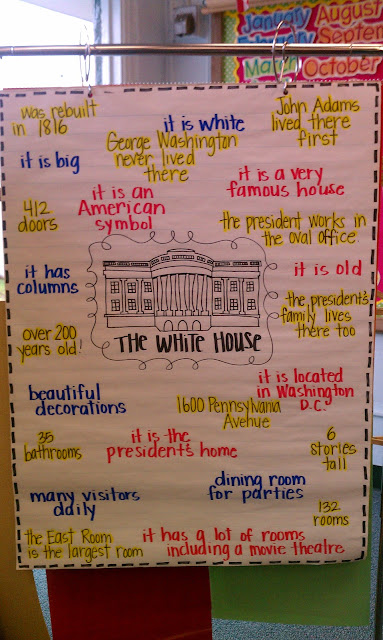 January August
February Septem
March October
was rebuilt
in 1816
it is white
John Adams
lived there
first
George Washington
never lived
there
it is big
it is a very
famous house
it is an
American
symbol
412
doors
the president works in
the oval office.
it has
columns
it is old
the president's
family lives
there too
over 200
years old!
THE WHITE HOUSE
it is located
in Washington
D.C.
beautiful
decorations
1600 Pennsylvania
Avenue
35
bathrooms
it is the
president's home
6
stories
tall
dining room
for parties
many visitors
daily
132
rooms
the East Room
is the largest room
it has a lot of rooms
including a movie theatre